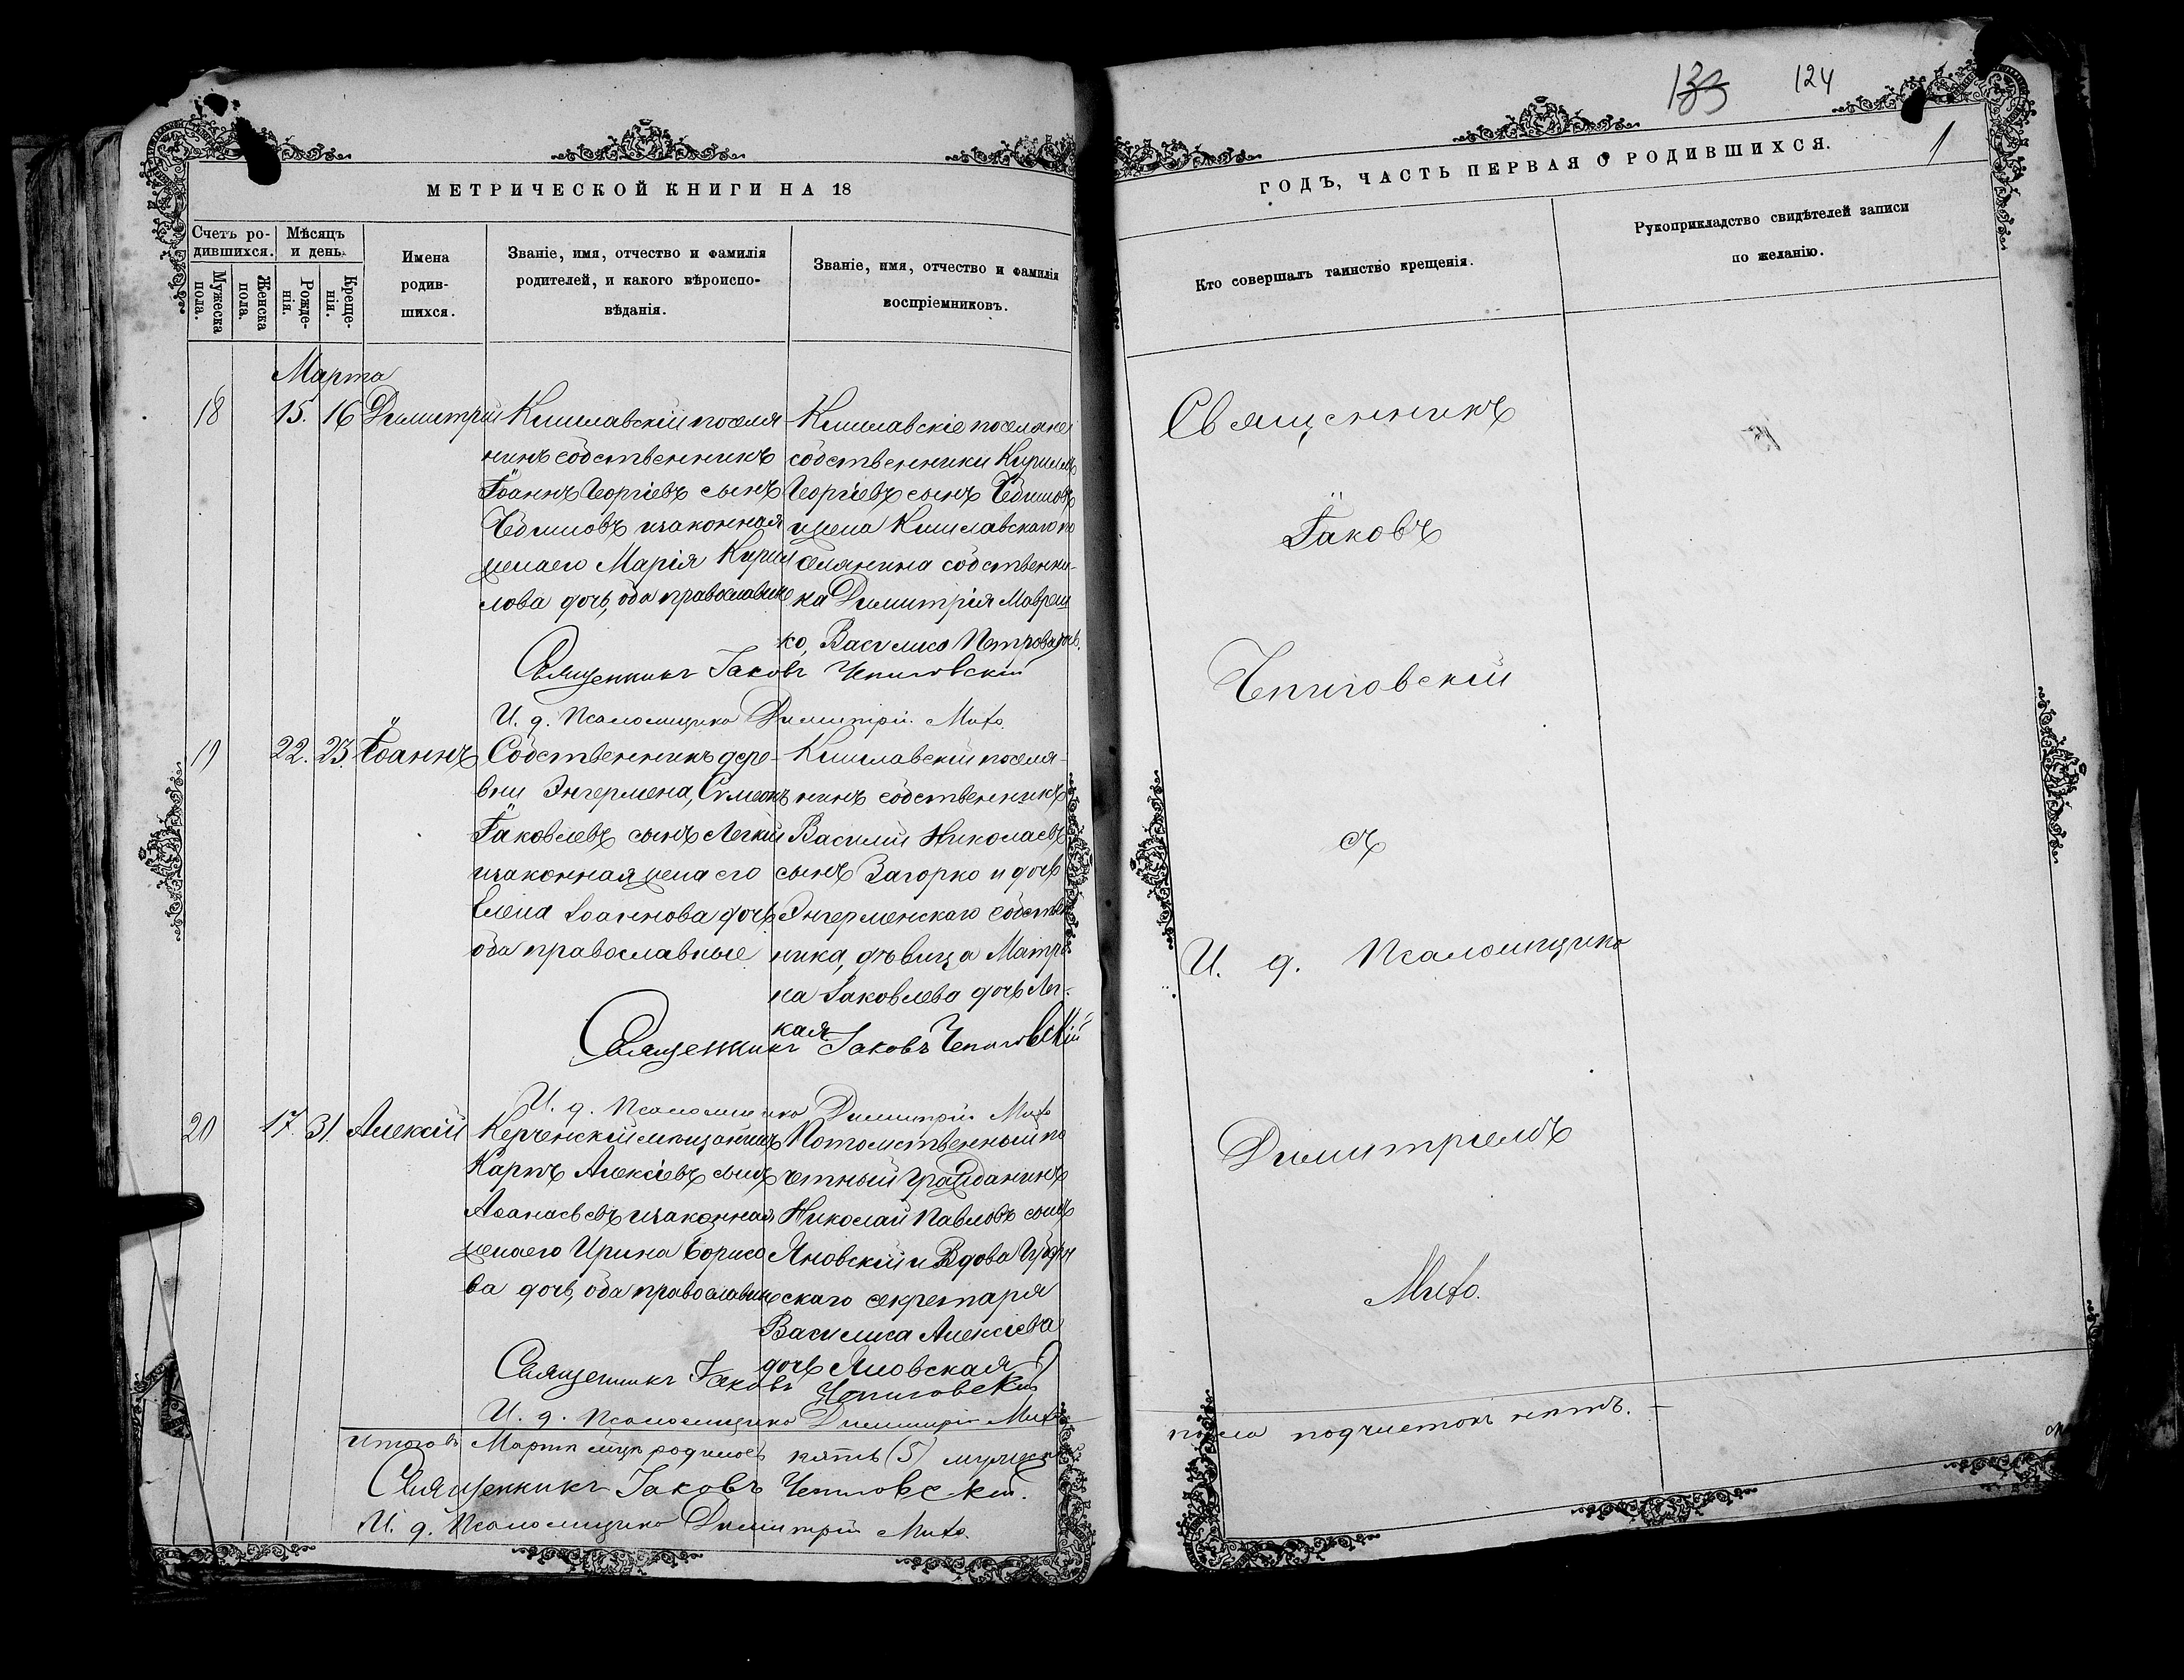 133 124
1
МЕТРИЧЕСКОЙ КНИГИ НА 18
ГОДЪ, ЧАСТЬ ПЕРВАЯ О РОДИВШИХСЯ.
Счетъ ро-
дившихся.
Мужеска
пола.
Женска
пола.
Мѣсяцъ
и день.
Рожде-
нія.
Креще-
нія.
Имена
родив-
шихся.
Званіе, имя, отчество и фамилія
родителей, и какого вѣроиспо-
вѣданія.
Званіе, имя, отчество и фамилія
воспріемниковъ.
Кто совершалъ таинство крещенія.
Рукоприкладство свидѣтелей записи
по желанію.
Марта
18 15. 16 Димитрій
Кишлавскій поселя-
нинъ собственникъ
Іоаннъ Георгіевъ сынъ
изаконная
женаего Марія Кирил
лова дочь, оба православные
Кишлавскіе поселяне
собственники Кириллъ
Георгіевъ сынъ
ижена Кишлавскаго по
селянина собственни-
ка Димитрія Мавреш
ко, Василиса Петрова дочь.
Священникъ Іаковъ Чепиговскій
И. д. Псаломщика Димитрій
19 22. 23. Іоаннъ
Собственникъ дере-
вни Энгермена, Симеонъ
Іаковлевъ сынъ Легкій
изаконная жена его
Елена Іоаннова дочь,
оба православные
Кишлавскій поселя-
нинъ собственникъ
Василій Николаевъ
сынъ Загорко и дочь
Энгерменскаго собствен
ника, дѣвица Матро
на Іаковлева дочь Лег-
кая
Священникъ Іаковъ Чепиговскій
И. д. Псаломщика Димитрій
20 17. 31. Алексій
Керченскій мѣщанинъ
Карпъ Алексіевъ сынъ
Аѳанасьевъ изаконная
женаего Ирина Борисо
ва дочь, оба православные
Потомственный по
четный гражданинъ
Николай Павловъ сынъ
Яновскій и Вдова Губерн
скаго секретаря
Василиса Алексіева
дочь Яновская
Священникъ Іаковъ Чепиговскій
И. д. Псаломщика Димитрій
Итого въ Мартѣ мцѣ родилось пять (5) мужеска
Священникъ Іаковъ Чепиговскій.
И. д. Псаломщика Димитрій
Священникъ
Іаковъ
Чепиговскій
съ
И. д. Псаломщика
Димитріемъ
пола подчистокъ нѣтъ.